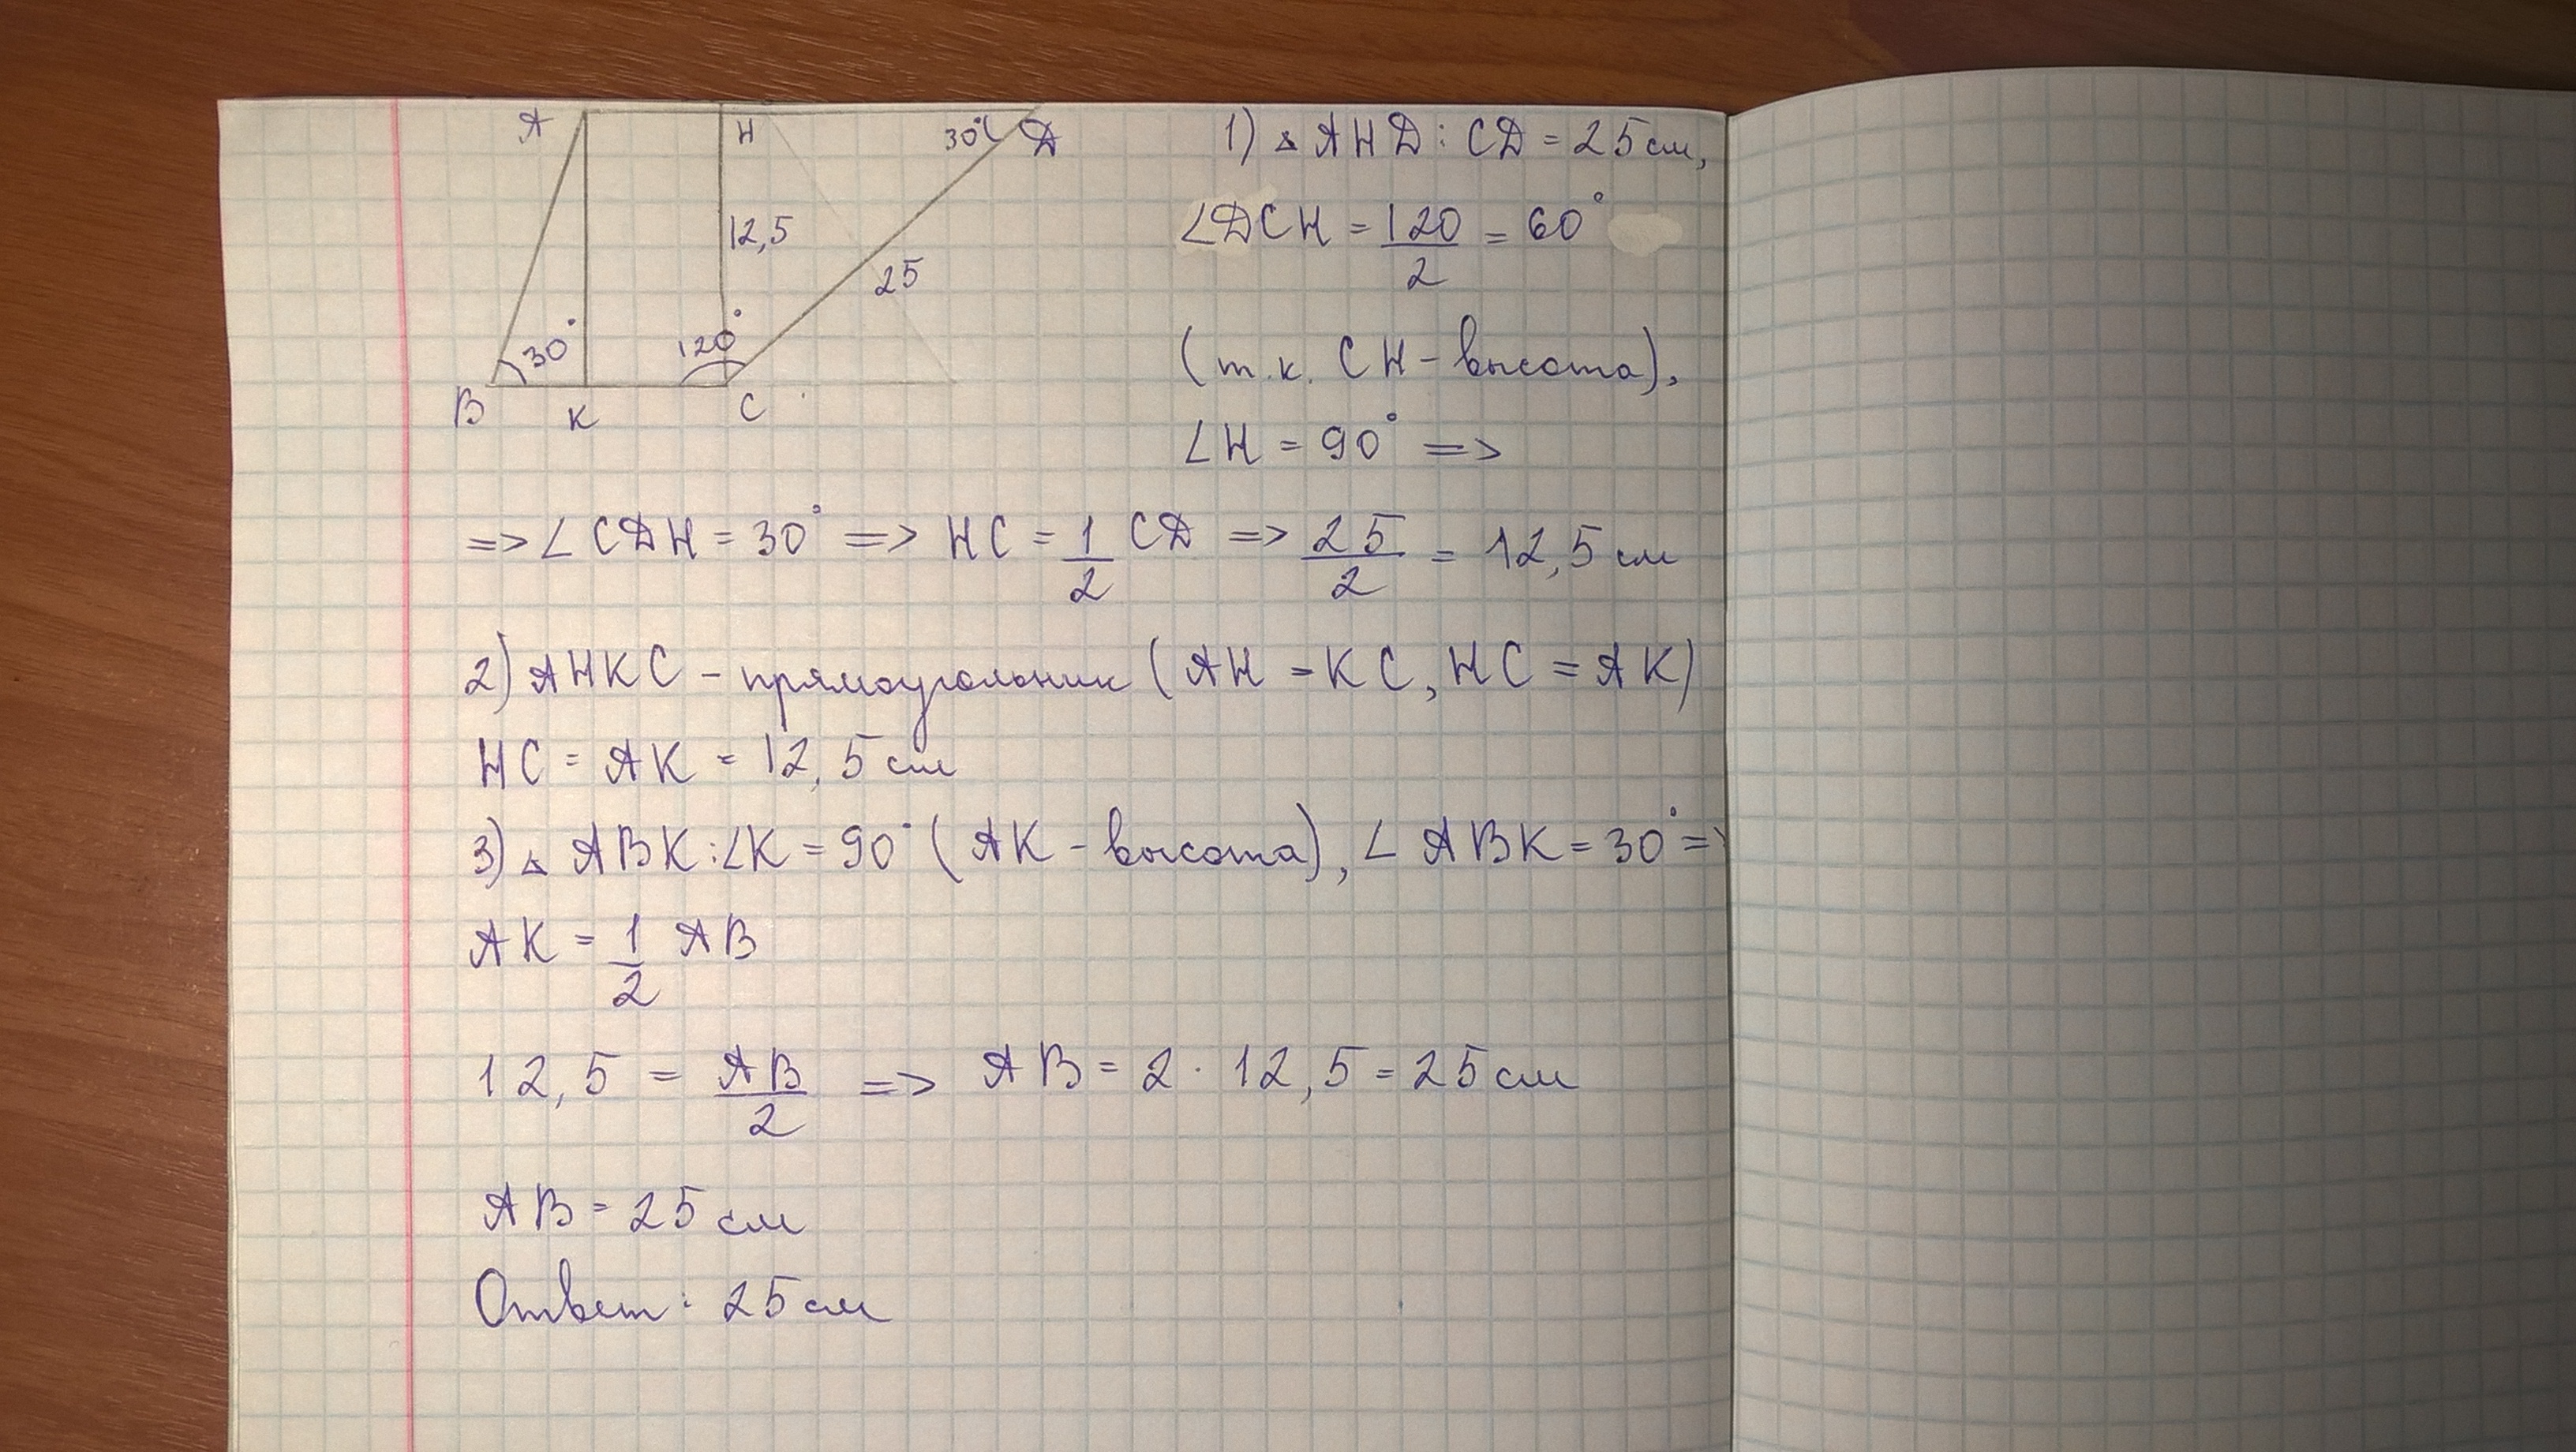 A
H
30°
D
12,5
25
30°
120°
B
K
C
1) △ AHD : CD = 25 см,
∠DCH = 120/2 = 60°
(т.к. CH - высота),
∠H = 90° =>
=> ∠CDH = 30° => HC = 1/2 CD => 25/2 = 12,5 см
2) AHKC - прямоугольник (AH = KC, HC = AK)
HC = AK = 12,5 см
3) △ ABK : ∠K = 90° (AK - высота), ∠ABK = 30° =>
AK = 1/2 AB
12,5 = AB/2 => AB = 2 · 12,5 = 25 см
AB = 25 см
Ответ : 25 см